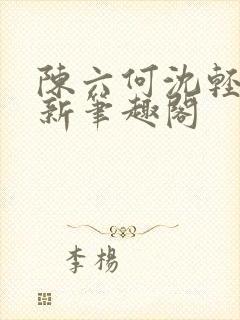 陳六何沈輕
新筆趣閣
李楊